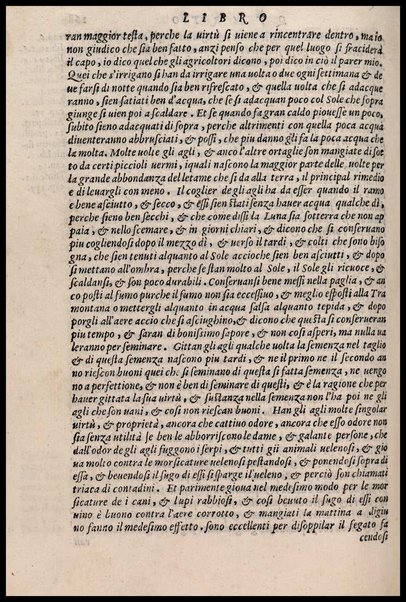 LIBRO
ran maggior testa, perche la uirtù si uiene a rincentrare dentro, ma io
non giudico che sia ben fatto, anzi penso che per quel luogo si fraciderà
il capo, io dico quel che gli agricoltori dicono, poi dico in ciò il parer mio.
Quei che s'irrigano si han da irrigare una uolta o due ogni settimana & de
ue farsi di notte quando sia ben rifrescato, & quella uolta che si adacque
ranno, sien satiati ben d'acqua, che se si adacquan poco col Sole che sopra
giunge si uien poi a scaldare. Et se quando fa gran caldo piouesse un poco,
subito sieno adacquati di sopra, perche altrimenti con quella poca acqua
diuenteranno abbrusciati, & possi, che piu danno gli fa la poca acqua che
la molta. Molte uolte gli agli, & anco l'altre ortaglie son mangiate disot
to da certi piccioli uermi, i quali nascono la maggior parte delle uolte per
la grande abbondanza del letame che si da alla terra, il principal rimedio
è di leuargli con meno. Il coglier degli agli ha da esser quando il ramo
è bene asciutto, & secco, & essi sien stati senza hauer acqua qualche dì,
perche sieno ben secchi, & che come dissi la Luna sia sotterra che non ap
paia, & nello scemare, & in giorni chiari, & dicono che si conseruano
piu cogliendosi dopo il mezzo dì, & uerso il tardi, & colti che sono biso
gna, che sien tenuti alquanto al Sole accioche sien ben asciutti, & dopo
si mettano all'ombra, perche se stan molto al Sole, il Sole gli ricuoce, &
scaldansi, & son poco durabili. Conseruansi bene messi nella paglia, & an
co posti al fumo purche il fumo non sia eccessiuo, & meglio esposti alla Tra
montana o mettergli alquanto in acqua salsa alquanto tepida, & dopo
porgli all'aere accio che si asciughino, & dicono che questa si conserueran
piu tempo, & saran di bonissimo sapore, & non così asperi, ma nulla ua
leranno per seminare. Gittan gli agli qualche uolta la semenza nel taglio
& di questa semenza nascono piu tardi, & ne il primo ne il secondo an
no riescon buoni quei che si seminano di questa si fatta semenza, ne uengo
no a perfettione, & non è ben di seminare di questi, & è la ragione che per
hauer gittata la sua uirtù, & sustanza nella semenza non l'ha poi ne gli
agli che son uani, & cosi non riescan buoni. Han gli agli molte singolar
uirtù, & proprietà, ancora che cattiuo odore, ancora che esso odore non
sia senza utilità se ben le abborriscono le dame, & galante persone, che
dall'odor de gli agli fuggono i serpi, & tutti gli animali uelenosi, & gio
ua molto contra le morsicature uelenosi pestandosi, & ponendosi sopra di
essa, & beuendosi il sugo di essi sparge il ueleno, & perciò son chiamati
triaca di contadini. Et parimente gioua nel medesimo modo per le mor
sicature de i cani, & lupi rabbiosi, & così beuuto il sugo di essi con
uino è buono contra l'aere corrotto, & mangiati la mattina a digiu
no fanno il medesimo effetto. sono eccellenti per disoppilar il fegato fa
cendosi